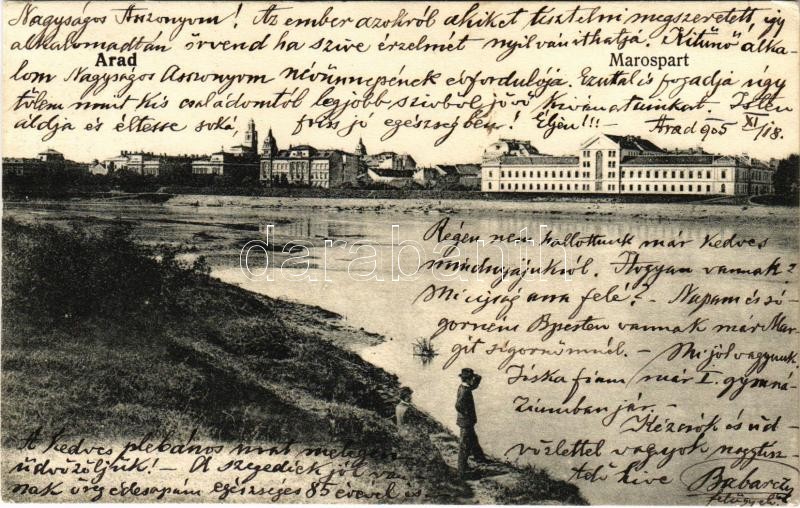 Nagyságos Asszonyom! Az ember azokról akiket tisztelni megszeretett, így
alkalomadtán örvend ha szive érzelmét nyilváníthatja. Kitünő alka-
Arad
Marospart
lom Nagyságos Asszonyom névünnepének évfordulója. Ezuttal is fogadja úgy
tőlem mint kis családomtól legjobb szivből jövő kivánatunkat. Isten
áldja és éltesse soká, friss jó egészségben! Éljen!!! - Arad 905 XI/18.
Régen nem hallottunk már kedves
mindnyájukról. Hogyan vannak?
Mi ujság arra felé? - Napam és só-
gornéim Bpesten vannak már Mar-
git sógornőmnél. - Mi jól vagyunk.
Jiska fiam már I. gymná-
ziumban jár. -
Kézcsók és üd-
vözlettel vagyok nagytisz-
telő hive Babarczy
A kedves plebános urat melegen
üdvözöljük! - A szegediek jól va-
nak öreg édesapám egészséges 85 évével is -
darabanth